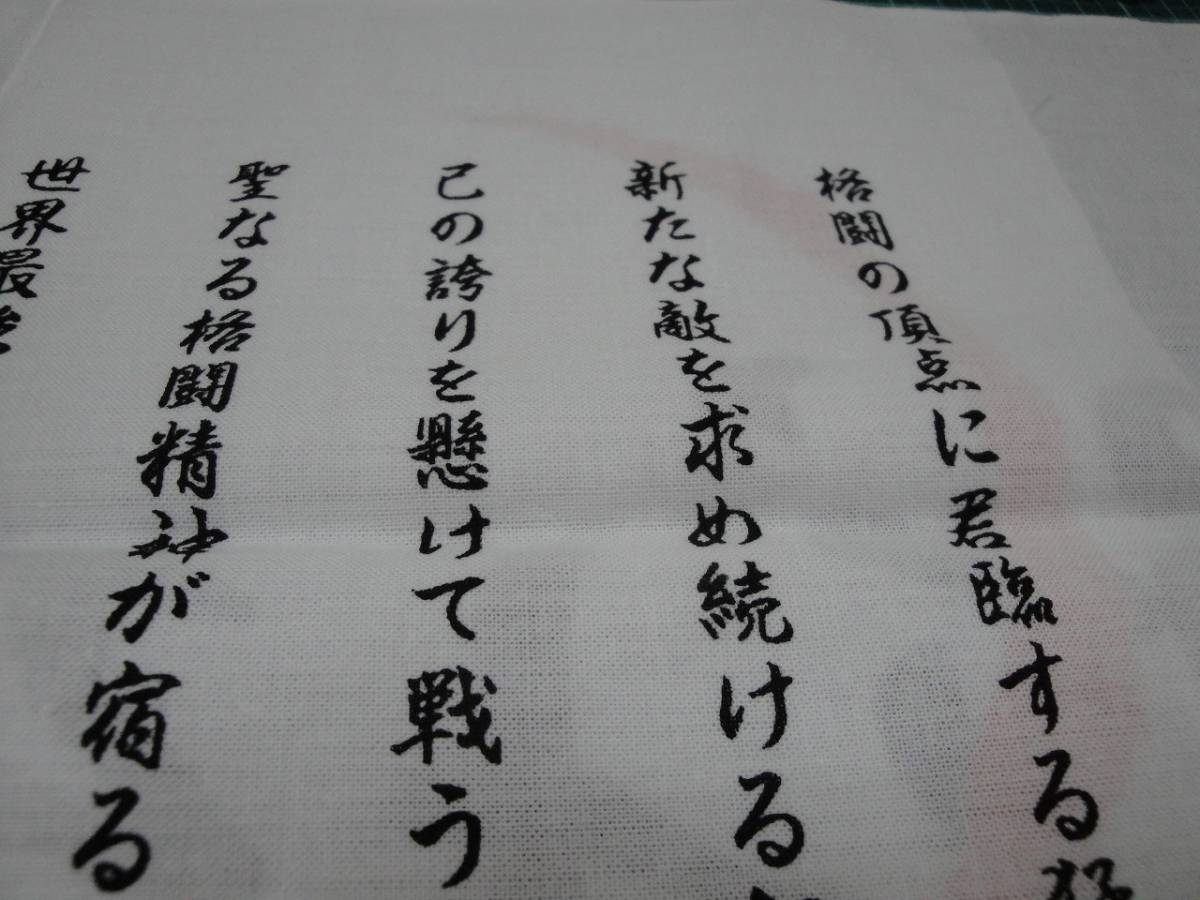 格闘の頂点に君臨する
新たな敵を求め続ける
己の誇りを懸けて戦う
聖なる格闘精神が宿る
世界最